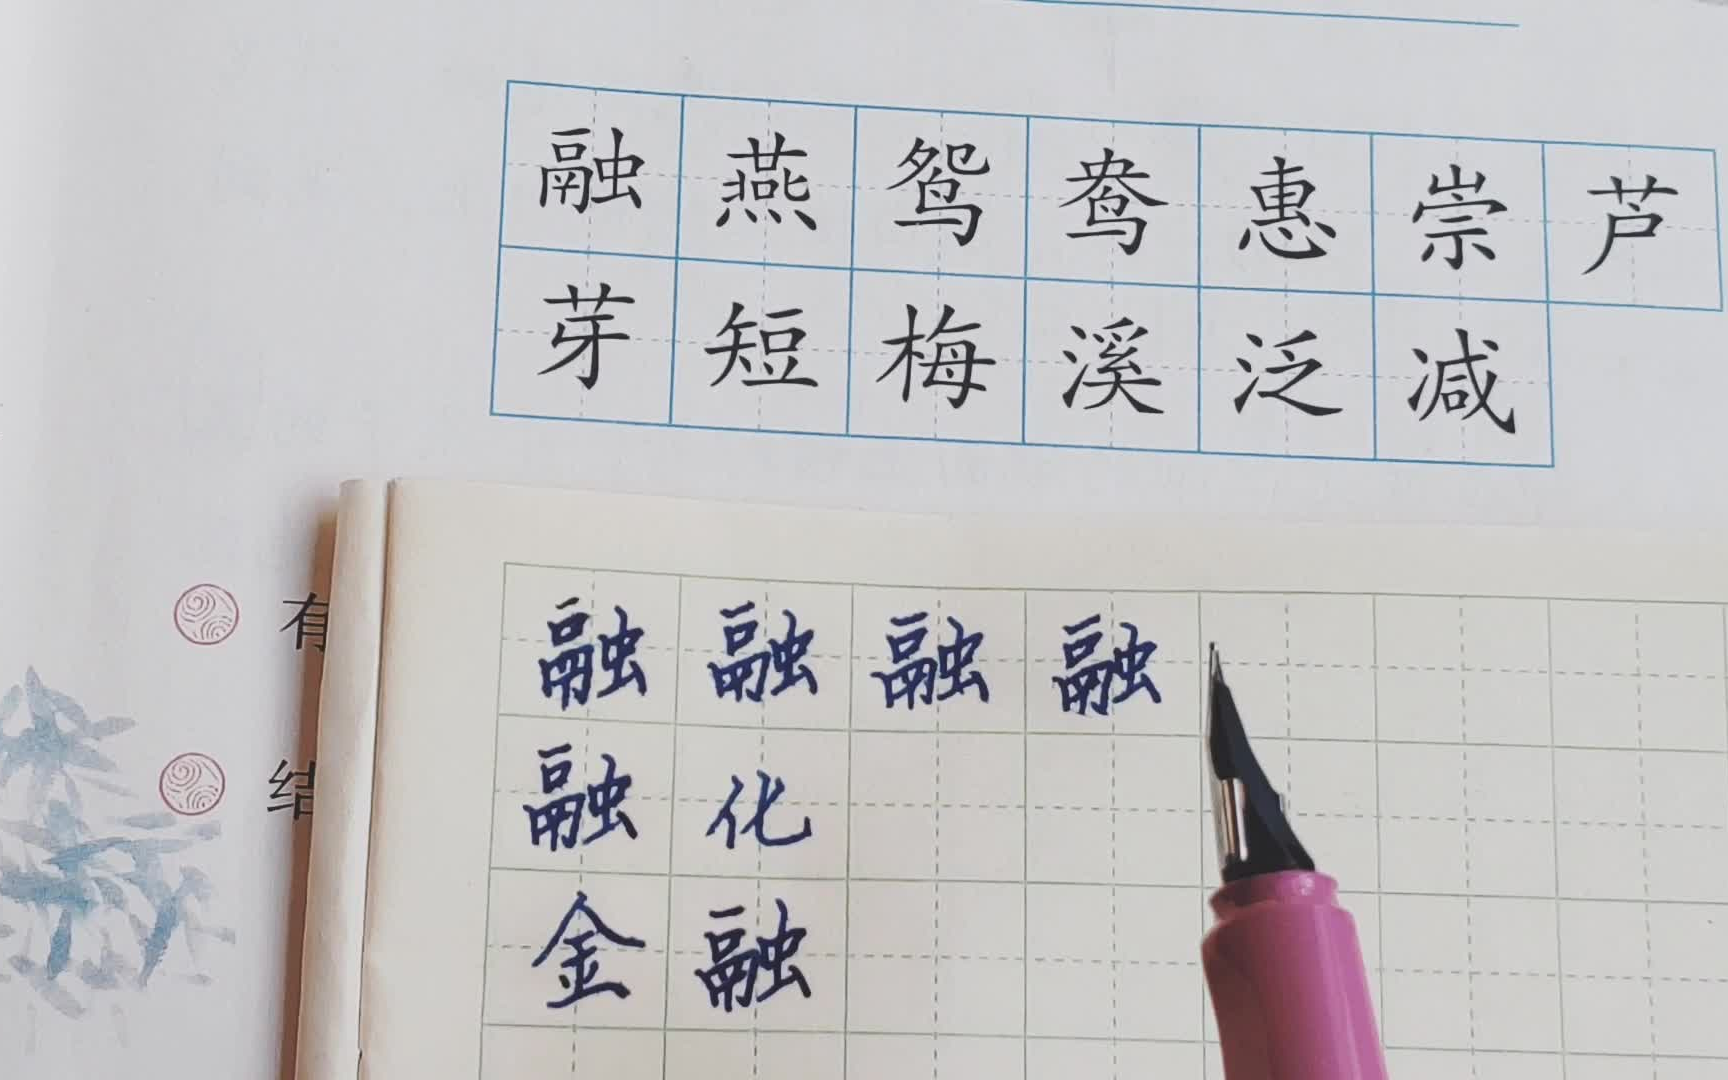 融燕鸳鸯惠崇芦
芽短梅溪泛减
融融融融
有
融化
结
金融